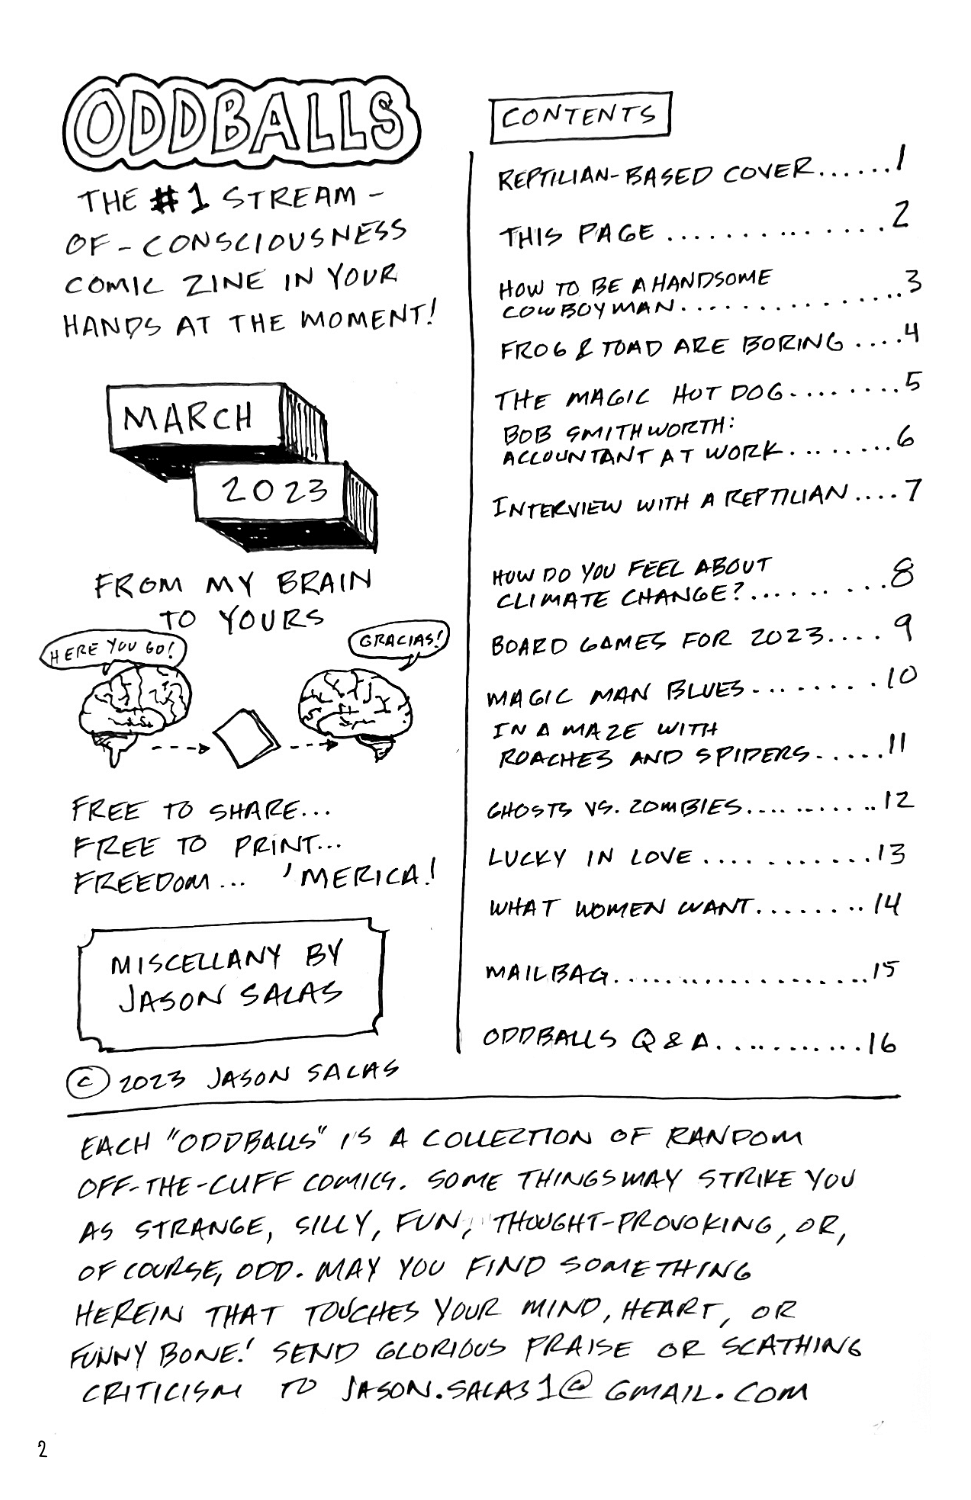 ODDBALLS
THE #1 STREAM-
OF-CONSCIOUSNESS
COMIC ZINE IN YOUR
HANDS AT THE MOMENT!
MARCH
2023
FROM MY BRAIN
TO YOURS
HERE YOU GO!
GRACIAS!
FREE TO SHARE...
FREE TO PRINT...
FREEDOM... 'MERICA!
MISCELLANY BY
JASON SALAS
© 2023 JASON SALAS
CONTENTS
REPTILIAN-BASED COVER......1
THIS PAGE ..............2
HOW TO BE A HANDSOME
COWBOY MAN...............3
FROG & TOAD ARE BORING ....4
THE MAGIC HOT DOG........5
BOB SMITHWORTH:
ACCOUNTANT AT WORK........6
INTERVIEW WITH A REPTILIAN....7
HOW DO YOU FEEL ABOUT
CLIMATE CHANGE?..........8
BOARD GAMES FOR 2023....9
MAGIC MAN BLUES........10
IN A MAZE WITH
ROACHES AND SPIDERS.....11
GHOSTS VS. ZOMBIES...........12
LUCKY IN LOVE ............13
WHAT WOMEN WANT........14
MAILBAG...................15
ODDBALLS Q & A...........16
EACH "ODDBALLS" IS A COLLECTION OF RANDOM
OFF-THE-CUFF COMICS. SOME THINGS MAY STRIKE YOU
AS STRANGE, SILLY, FUN, THOUGHT-PROVOKING, OR,
OF COURSE, ODD. MAY YOU FIND SOMETHING
HEREIN THAT TOUCHES YOUR MIND, HEART, OR
FUNNY BONE! SEND GLORIOUS PRAISE OR SCATHING
CRITICISM TO JASON.SALAS1@GMAIL.COM
2